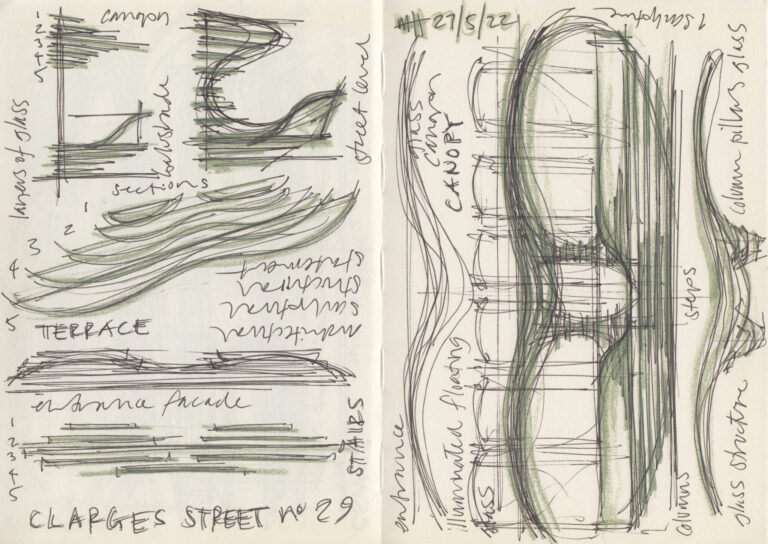 1
2
3
4
5
canopy
layers of glass
balustrade
street level
sections
1
2
3
4
5
architectural
sculptural
structural
statement
TERRACE
entrance facade
1
2
3
4
5
STAIRS
CLARGES STREET No 29
27/5/22
1 sculpture
glass
canopy
CANOPY
entrance
illuminated floating
glass
steps
columns
column pillars glass
glass structure